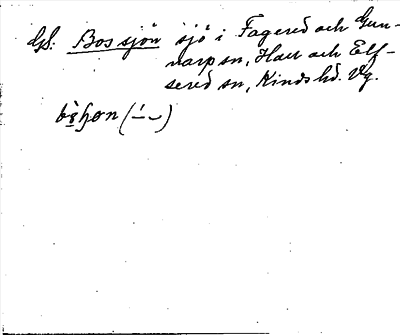 GS: Bossjön sjö i Fagered och Gun-
narp sn, Hall och Elf-
sered sn, Kinds hd. Vg.
bo̱s̱ɧøn (–́ ⌣)